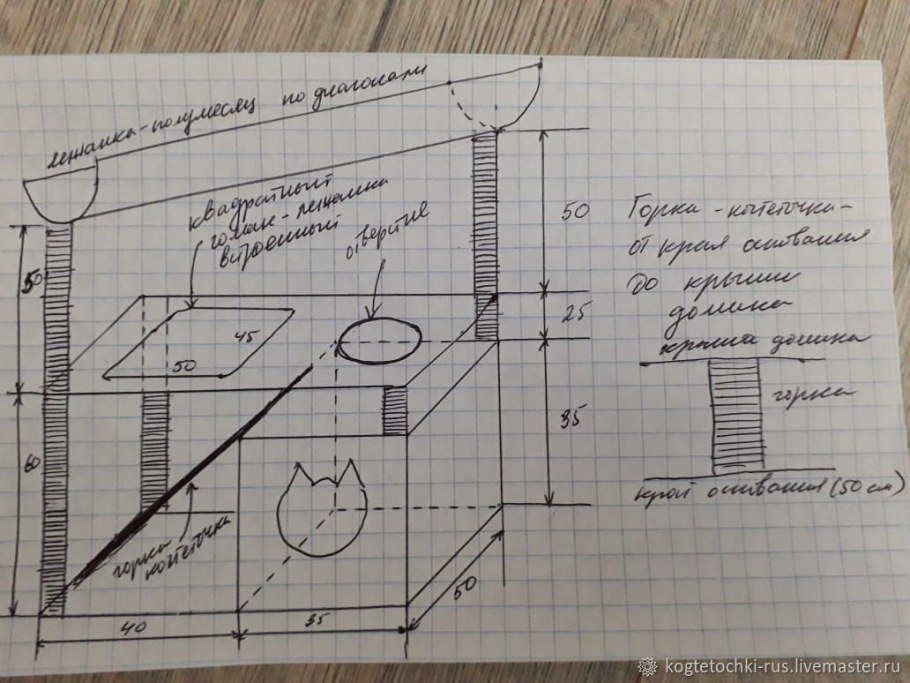 лежанка-полумесяц по диагонали
квадратный
гамак-лежанка
встроенный
отверстие
50
50
45
50
25
60
35
горка
когтеточка
40
35
50
Горка-когтеточка-
от края основания
до крыши
домика
крыша домика
горка
край основания (50 см)
kogtetochki-rus.livemaster.ru